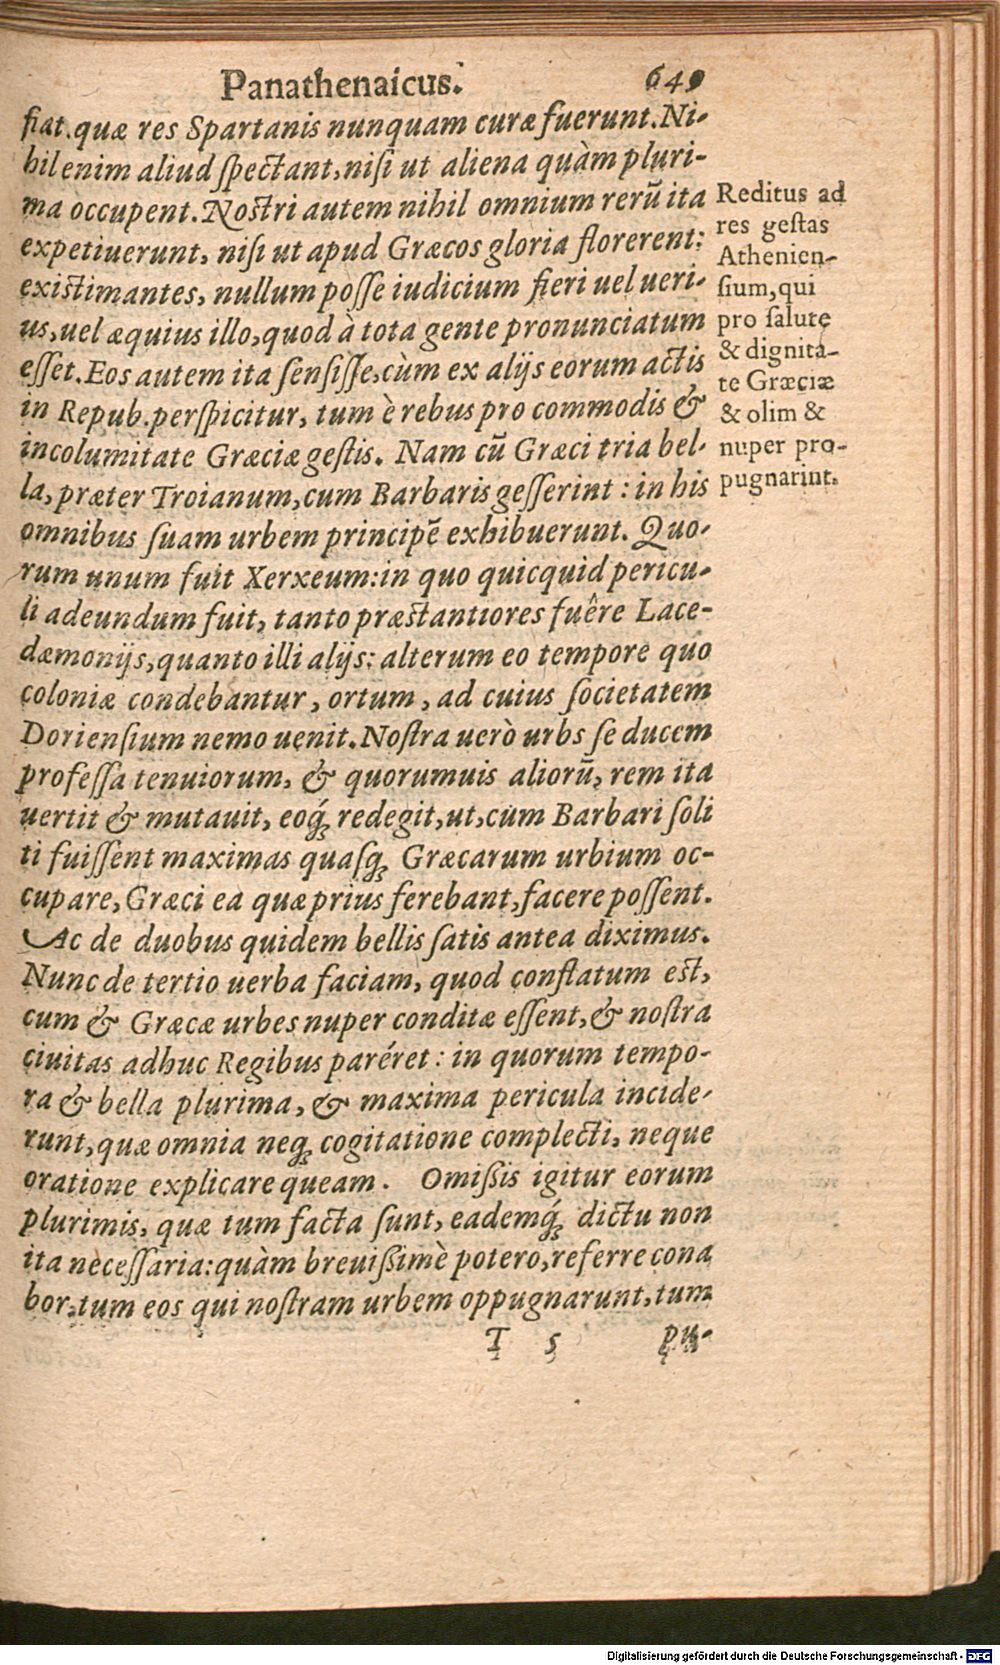 Panathenaicus. 649
fiat. quæ res Spartanis nunquam curæ fuerunt. Ni-
hil enim aliud ſpectant, niſi ut aliena quàm pluri-
ma occupent. Noſtri autem nihil omnium rerũ ita
expetiuerunt, niſi ut apud Græcos gloria florerent:
exiſtimantes, nullum poſſe iudicium fieri uel ueri-
us, uel æquius illo, quod à tota gente pronunciatum
eſſet. Eos autem ita ſenſiſſe, cùm ex alijs eorum actis
in Repub. perſpicitur, tum è rebus pro commodis &
incolumitate Græciæ geſtis. Nam cũ Græci tria bel-
la, præter Troianum, cum Barbaris geſſerint: in his
omnibus ſuam urbem principẽ exhibuerunt. Quo-
rum unum fuit Xerxeum: in quo quicquid pericu-
li adeundum fuit, tanto præſtantiores fuêre Lace-
dæmonijs, quanto illi alijs: alterum eo tempore quo
coloniæ condebantur, ortum, ad cuius ſocietatem
Dorienſium nemo uenit. Noſtra uerò urbs ſe ducem
profeſſa tenuiorum, & quorumuis aliorũ, rem ita
uertit & mutauit, eoq́; redegit, ut, cùm Barbari ſoli
ti fuiſſent maximas quaſq; Græcarum urbium oc-
cupare, Græci ea quæ prius ferebant, facere poſſent.
Ac de duobus quidem bellis ſatis antea diximus.
Nunc de tertio uerba faciam, quod conflatum eſt,
cum & Græcæ urbes nuper conditæ eſſent, & noſtra
ciuitas adhuc Regibus paréret: in quorum tempo-
ra & bella plurima, & maxima pericula incide-
runt, quæ omnia neq; cogitatione complecti, neque
oratione explicare queam. Omiſsis igitur eorum
plurimis, quæ tum facta ſunt, eademq́; dictu non
ita neceſſaria: quàm breuiſsimè potero, referre cona
bor, tum eos qui noſtram urbem oppugnarunt, tum
T 5 pu-
Reditus ad
res geſtas
Athenien-
ſium, qui
pro ſalute
& dignita-
te Græciæ
& olim &
nuper pro-
pugnarint.
Digitalisierung gefördert durch die Deutsche Forschungsgemeinschaft - DFG